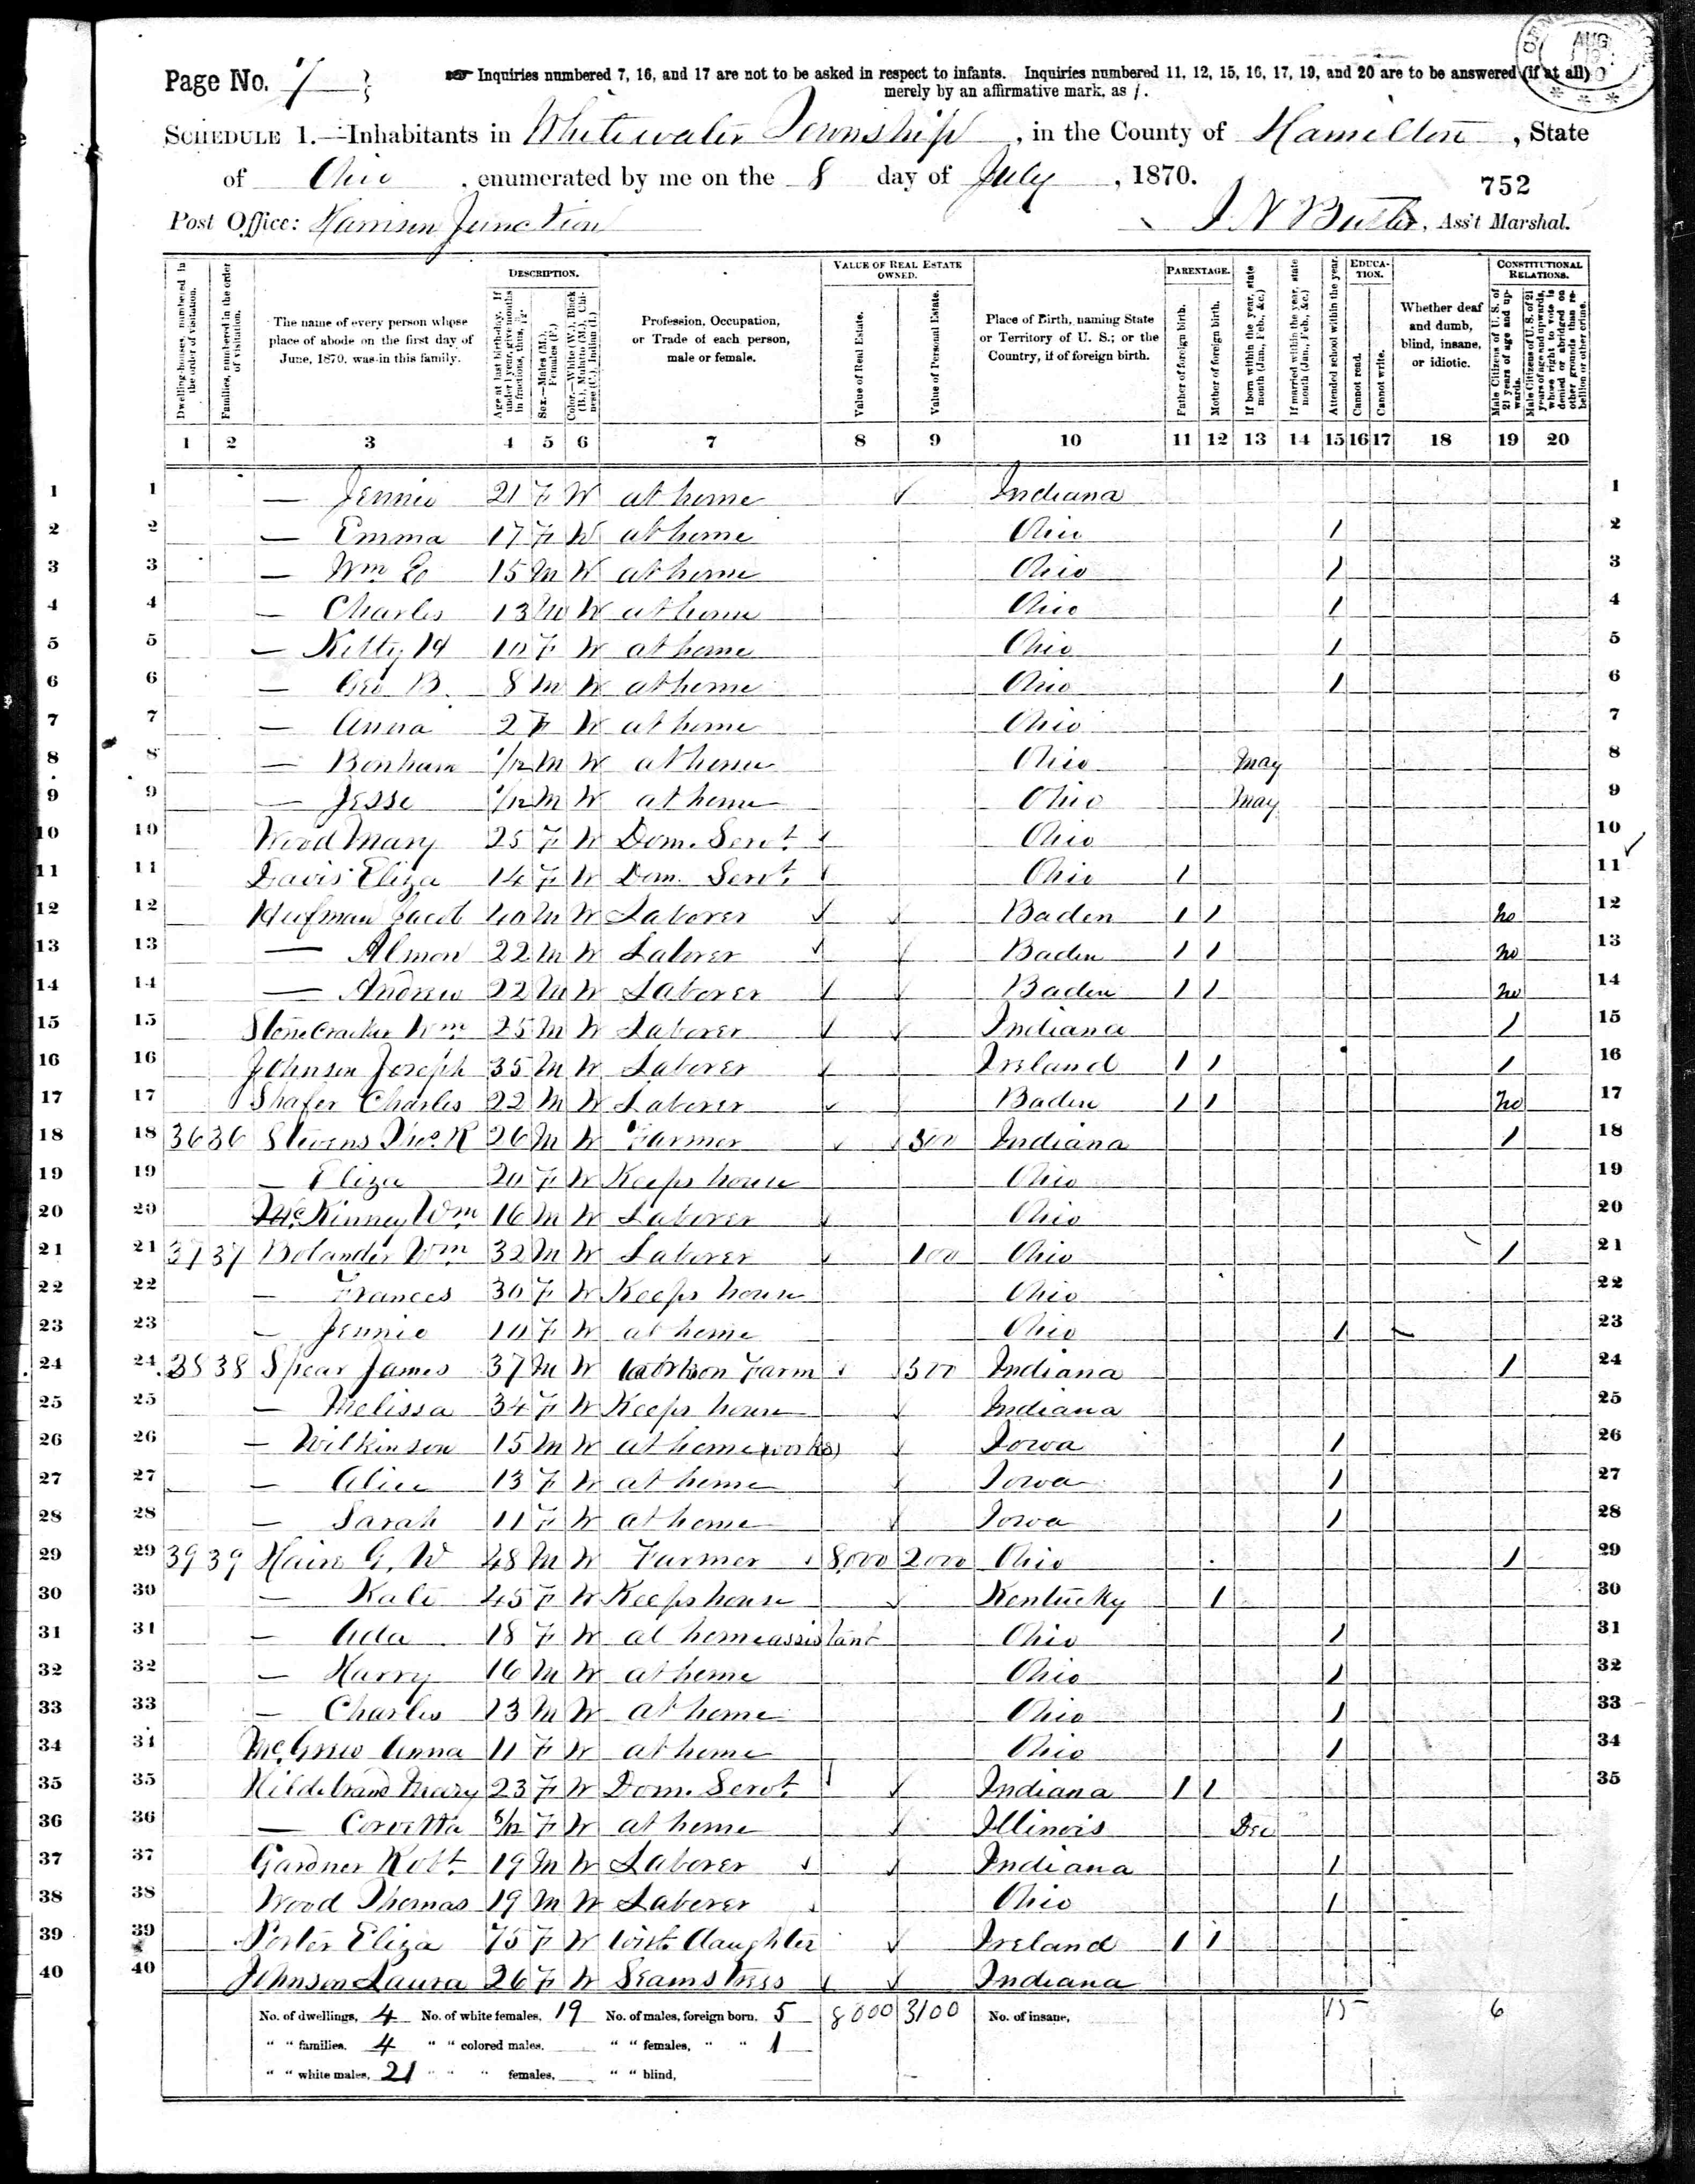 Page No. 7
Inquiries numbered 7, 16, and 17 are not to be asked in respect to infants. Inquiries numbered 11, 12, 15, 16, 17, 19, and 20 are to be answered (if at all)
merely by an affirmative mark, as /.
AUG
SCHEDULE 1.—Inhabitants in Whitewater Township, in the County of Hamilton, State
of Ohio, enumerated by me on the 8 day of July, 1870.
752
Post Office: Harrison Junction
J N Butler, Ass't Marshal.
Dwelling-houses, numbered in the order of visitation.
Families, numbered in the order of visitation.
The name of every person whose place of abode on the first day of June, 1870, was in this family.
DESCRIPTION.
Age at last birth-day. If under 1 year, give months in fractions, thus, 3/12.
Sex.—Males (M.), Females (F.)
Color.—White (W.), Black (B.), Mulatto (M.), Chinese (C.), Indian (I.)
Profession, Occupation, or Trade of each person, male or female.
VALUE OF REAL ESTATE OWNED.
Value of Real Estate.
Value of Personal Estate.
Place of Birth, naming State or Territory of U. S.; or the Country, if of foreign birth.
PARENTAGE.
Father of foreign birth.
Mother of foreign birth.
If born within the year, state month (Jan., Feb., &c.)
If married within the year, state month (Jan., Feb., &c.)
Attended school within the year.
EDUCATION.
Cannot read.
Cannot write.
Whether deaf and dumb, blind, insane, or idiotic.
CONSTITUTIONAL RELATIONS.
Male Citizens of U. S. of 21 years of age and upwards.
Male Citizens of U. S. of 21 years of age and upwards, whose right to vote is denied or abridged on other grounds than rebellion or other crime.
1 2 3 4 5 6 7 8 9 10 11 12 13 14 15 16 17 18 19 20
1 — Jennie 21 F W at home Indiana 1
2 — Emma 17 F W at home Ohio / 2
3 — Wm E 15 M W at home Ohio / 3
4 — Charles 13 M W at home Ohio / 4
5 — Kitty H 10 F W at home Ohio / 5
6 — Geo B. 8 M W at home Ohio / 6
7 — Anna 2 F W at home Ohio 7
8 — Bonham 1/12 M W at home Ohio May 8
9 — Jesse 1/12 M W at home Ohio May 9
10 Wood Mary 25 F W Dom. Servt Ohio 10
11 Davis Eliza 14 F W Dom. Servt Ohio / 11
12 Hufman Jacob 40 M W Laborer Baden / / no 12
13 — Almon 22 M W Laborer Baden / / no 13
14 — Andrew 22 M W Laborer Baden / / no 14
15 Stonecracker Wm 25 M W Laborer Indiana / 15
16 Johnson Joseph 35 M W Laborer Ireland / / / 16
17 Shafer Charles 22 M W Laborer Baden / / no 17
18 36 36 Stevens Thos R 26 M W Farmer 500 Indiana / 18
19 — Eliza 20 F W Keeps house Ohio 19
20 McKinney Wm 16 M W Laborer Ohio 20
21 37 37 Bolander Wm 32 M W Laborer 100 Ohio / 21
22 — Frances 30 F W Keeps house Ohio 22
23 — Jennie 10 F W at home Ohio / 23
24 38 38 Spear James 37 M W works on Farm 500 Indiana / 24
25 — Melissa 34 F W Keeps house Indiana 25
26 — Wilkinson 15 M W at home (works) Iowa / 26
27 — Alice 13 F W at home Iowa / 27
28 — Sarah 11 F W at home Iowa / 28
29 39 39 Hain G. W 48 M W Farmer 8000 2000 Ohio / 29
30 — Kate 45 F W Keeps house Kentucky / 30
31 — Ada 18 F W at home assistant Ohio / 31
32 — Harry 16 M W at home Ohio / 32
33 — Charles 13 M W at home Ohio / 33
34 McGrew Anna 11 F W at home Ohio / 34
35 Hildebrand Mary 23 F W Dom. Servt Indiana / / 35
36 — Corvetta 5/12 F W at home Illinois Dec
37 Gardner Robt 19 M W Laborer Indiana /
38 Wood Thomas 19 M W Laborer Ohio /
39 Porter Eliza 75 F W with daughter Ireland / /
40 Johnson Laura 26 F W Seamstress Indiana
No. of dwellings, 4 No. of white females, 19 No. of males, foreign born, 5 8000 3100 No. of insane, 15 6
" " families, 4 " " colored males, " " females, " " 1
" " white males, 21 " " " females, " " blind,